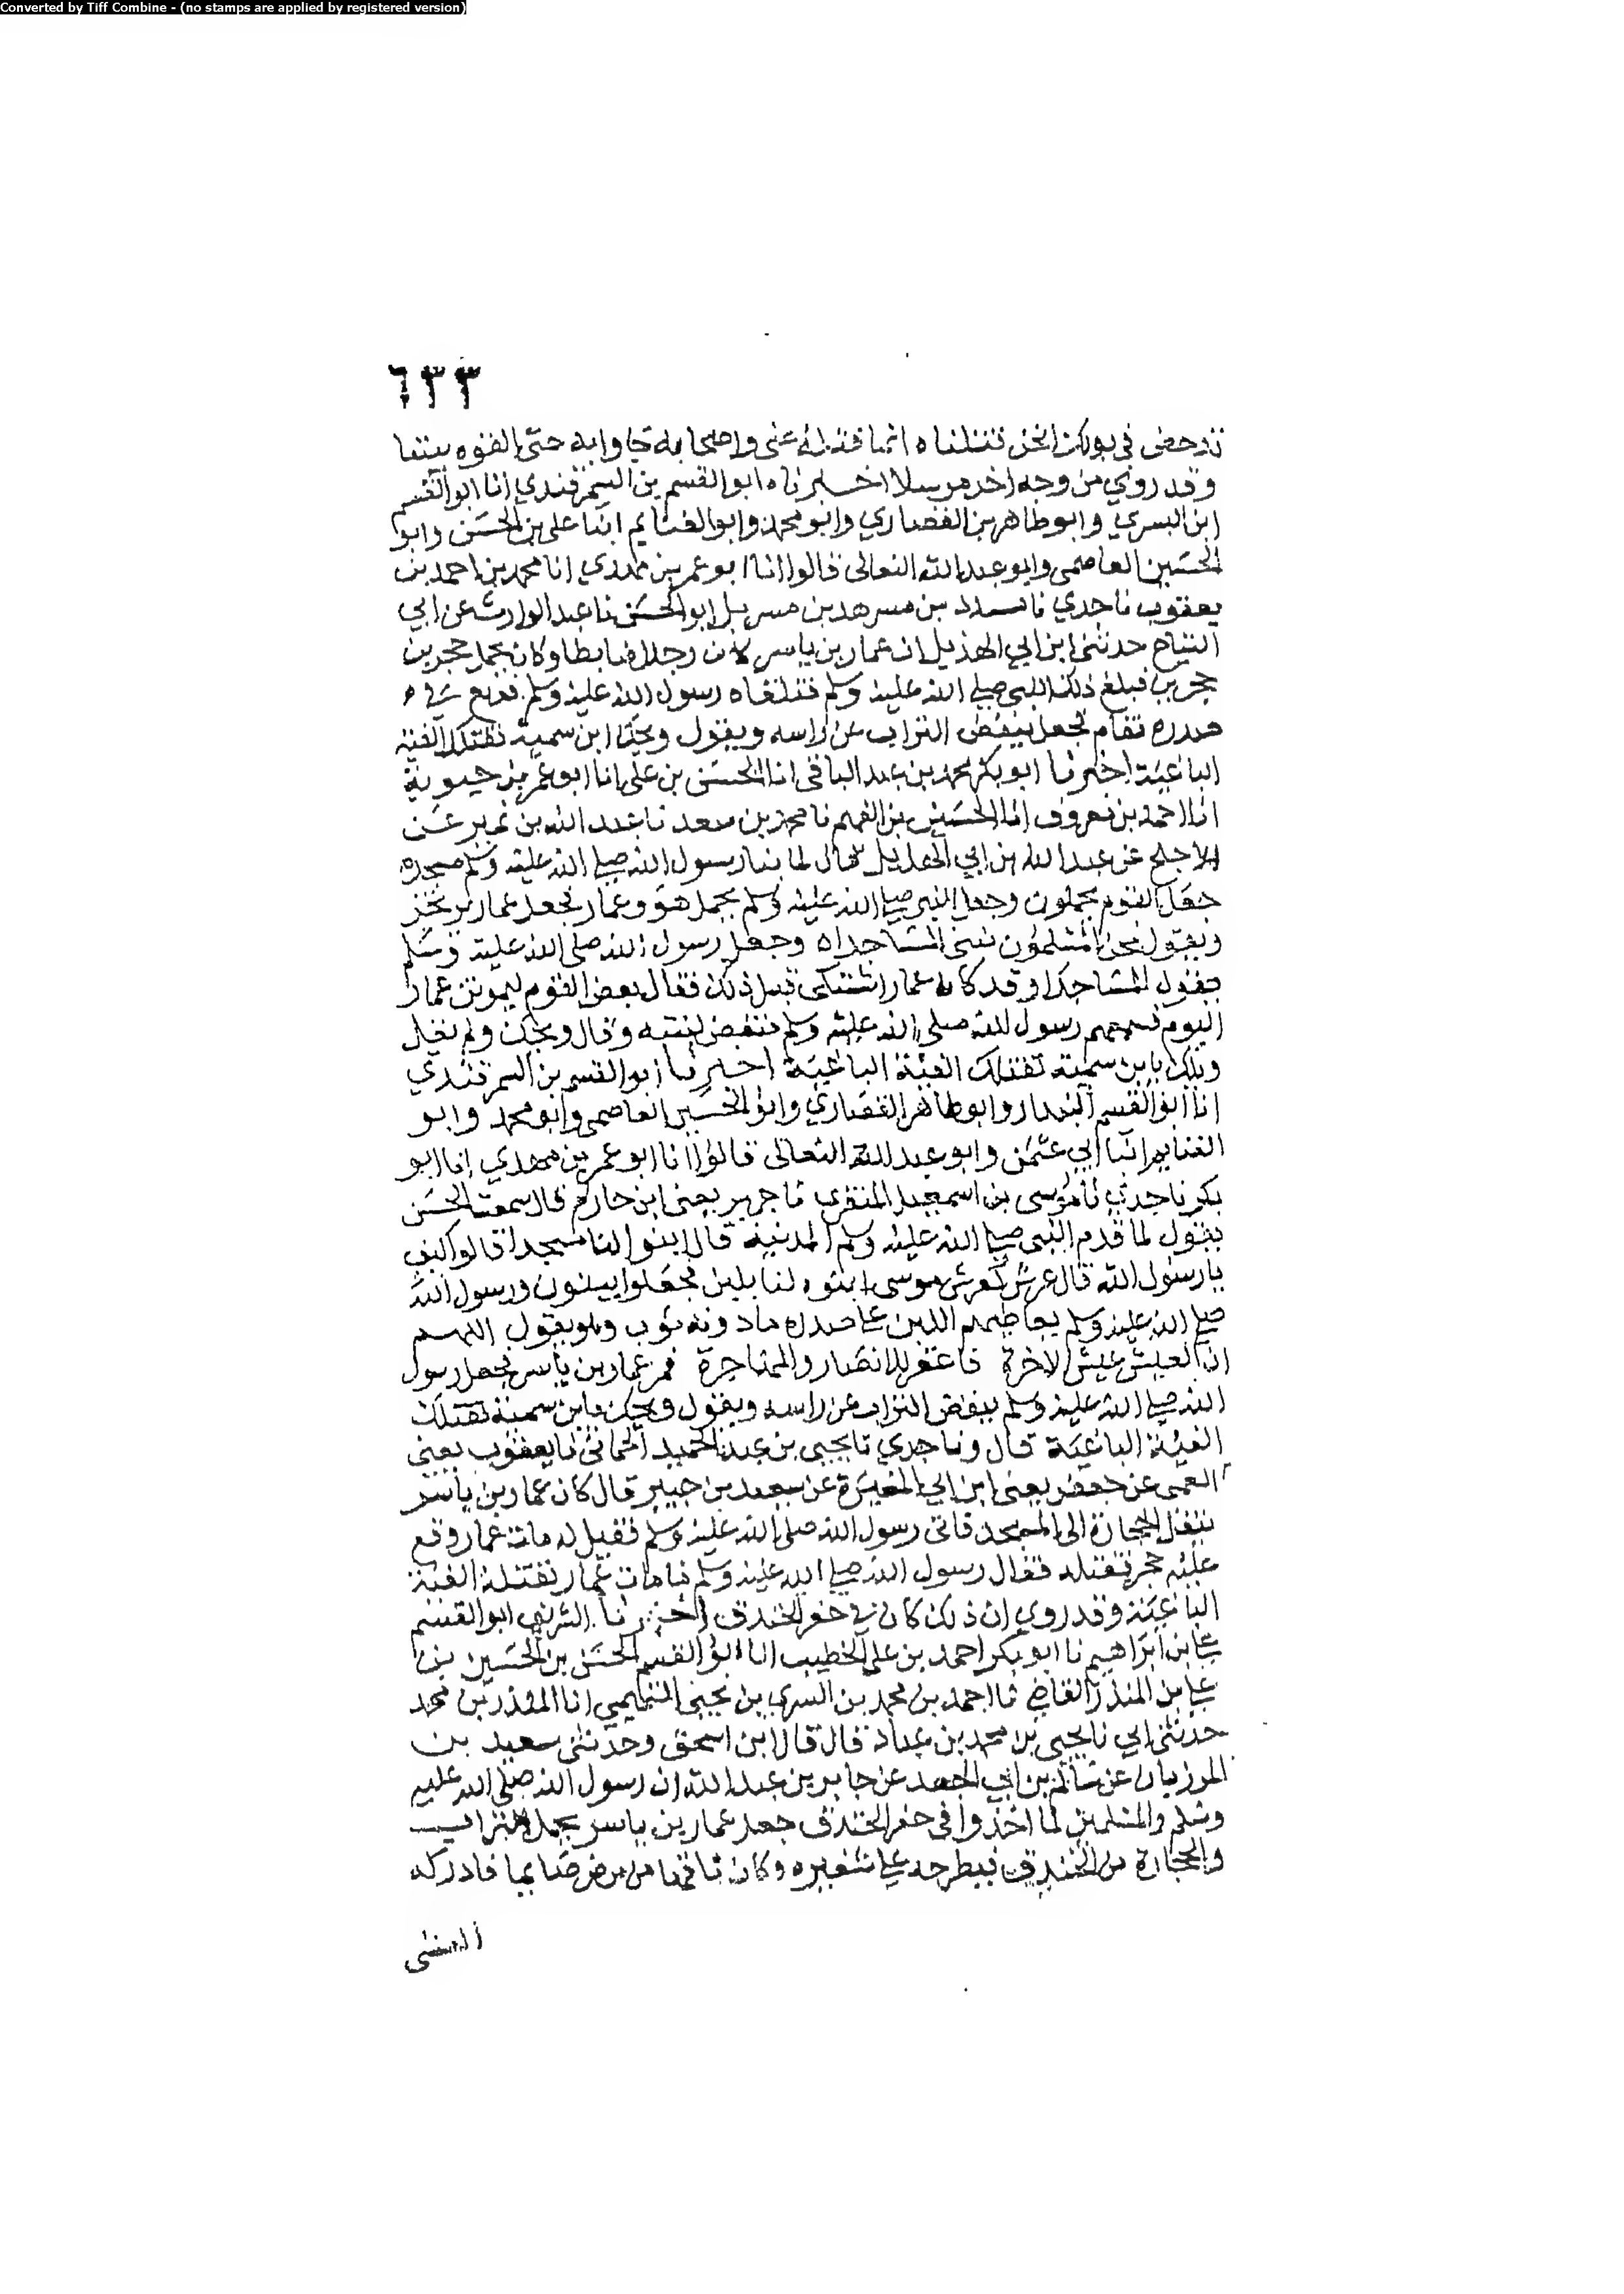 Converted by Tiff Combine - (no stamps are applied by registered version)
٦٣٣
تدحض في بولك انحن قتلناه انما قتله علي واصحابه جاوا به حتى القوه بيننا
وقد روي من وجه اخر مرسلا اخبرناه ابو القسم بن السمرقندي انا ابو القسم
ابن البسري وابو طاهر بن القصاري وابو محمد وابو الغنايم ابنا علي بن الحسن وابو
الحسين العاصمي وابو عبد الله النعالى قالوا انا ابو عمر بن مهدي انا محمد بن احمد بن
يعقوب نا جدي نا مسدد بن مسرهد بن مسربل ابو الحسن نا عبد الوارث عن ابي
التياح حدثني ابن ابي الهذيل ان عمار بن ياسر كان رجلا ضابطا وكان يحمل حجرين
حجرين فبلغ ذلك النبي صلى الله عليه وسلم فتلقاه رسول الله عليه وسلم فدفع في
صدره فقام فجعل ينفض التراب عن راسه ويقول ويحك ابن سمية تقتلك الفئة
الباغية اخبرنا ابو بكر محمد بن عبد الباقي انا الحسن بن علي انا ابو عمر بن حيوية
انا احمد بن معروف انا الحسين بن الفهم نا محمد بن سعد نا عبد الله بن نمير عن
الاجلح عن عبد الله بن ابي الهذيل قال لما بنا رسول الله صلى الله عليه وسلم مسجده
جعل القوم يحملون وجعل النبي صلى الله عليه وسلم يحمل هو وعمار فجعل عمار يرتجز
ويقول نحن المسلمون نبني المساجدا وجعل رسول الله صلى الله عليه وسلم
يقول المساجدا وقد كان عمار اشتكى قبل ذلك فقال بعض القوم ليموتن عمار
اليوم فسمعهم رسول الله صلى الله عليه وسلم فنفض لبنته وقال ويحك ولم يقل
ويلك يا بن سمية تقتلك الفئة الباغية اخبرنا ابو القسم بن السمرقندي
انا ابو القسم البندار وابو طاهر القصاري وابو الحسين العاصمي وابو محمد وابو
الغنايم ابنا ابي عثمن وابو عبد الله النعالى قالوا انا ابو عمر بن مهدي انا ابو
بكر نا جدي نا موسى بن اسمعيل المنقري نا جرير يعني ابن حازم قال سمعت الحسن
يقول لما قدم النبي صلى الله عليه وسلم المدينة قال ابنوا لنا مسجدا قالوا كيف
يا رسول الله قال عرش كعرش موسى ابنوه لنا بلبن فجعلوا يبنون ورسول الله
صلى الله عليه وسلم يعاطيهم اللبن على صدره ما دونه ثوب وهو يقول اللهم
ان العيش عيش الاخرة فاغفر للانصار والمهاجرة فمر عمار بن ياسر فجعل رسول
الله صلى الله عليه وسلم ينفض التراب عن راسه ويقول ويحك يا بن سمية تقتلك
الفئة الباغية قال ونا جدي نا يحيى بن عبد الحميد الحماني نا يعقوب يعني
القمي عن جعفر يعني ابن ابي المغيرة عن سعيد بن جبير قال كان عمار بن ياسر
ينقل الحجارة الى المسجد فاتى رسول الله صلى الله عليه وسلم فقيل له مات عمار وقع
عليه حجر فقتله فقال رسول الله صلى الله عليه وسلم ما مات عمار تقتله الفئة
الباغية وقد روي ان ذلك كان في حفر الخندق اخبرنا الشريف ابو القسم
علي بن ابراهيم نا ابو بكر احمد بن علي الخطيب انا ابو القسم الحسن بن الحسين بن
علي بن المنذر القاضي نا احمد بن محمد بن السري بن يحيى التميمي انا المنذر بن محمد
حدثني ابي نا يحيى بن محمد بن عباد قال قال ابن اسحق وحدثني سعيد بن
المرزبان عن سالم بن ابي الجعد عن جابر بن عبد الله ان رسول الله صلى الله عليه
وسلم والمسلمين لما اخذوا في حفر الخندق جعل عمار بن ياسر يحمل التراب
والحجارة من الخندق فيطرحه على شفيره وكان ناقها من مرض صايما فادركه
الغشي